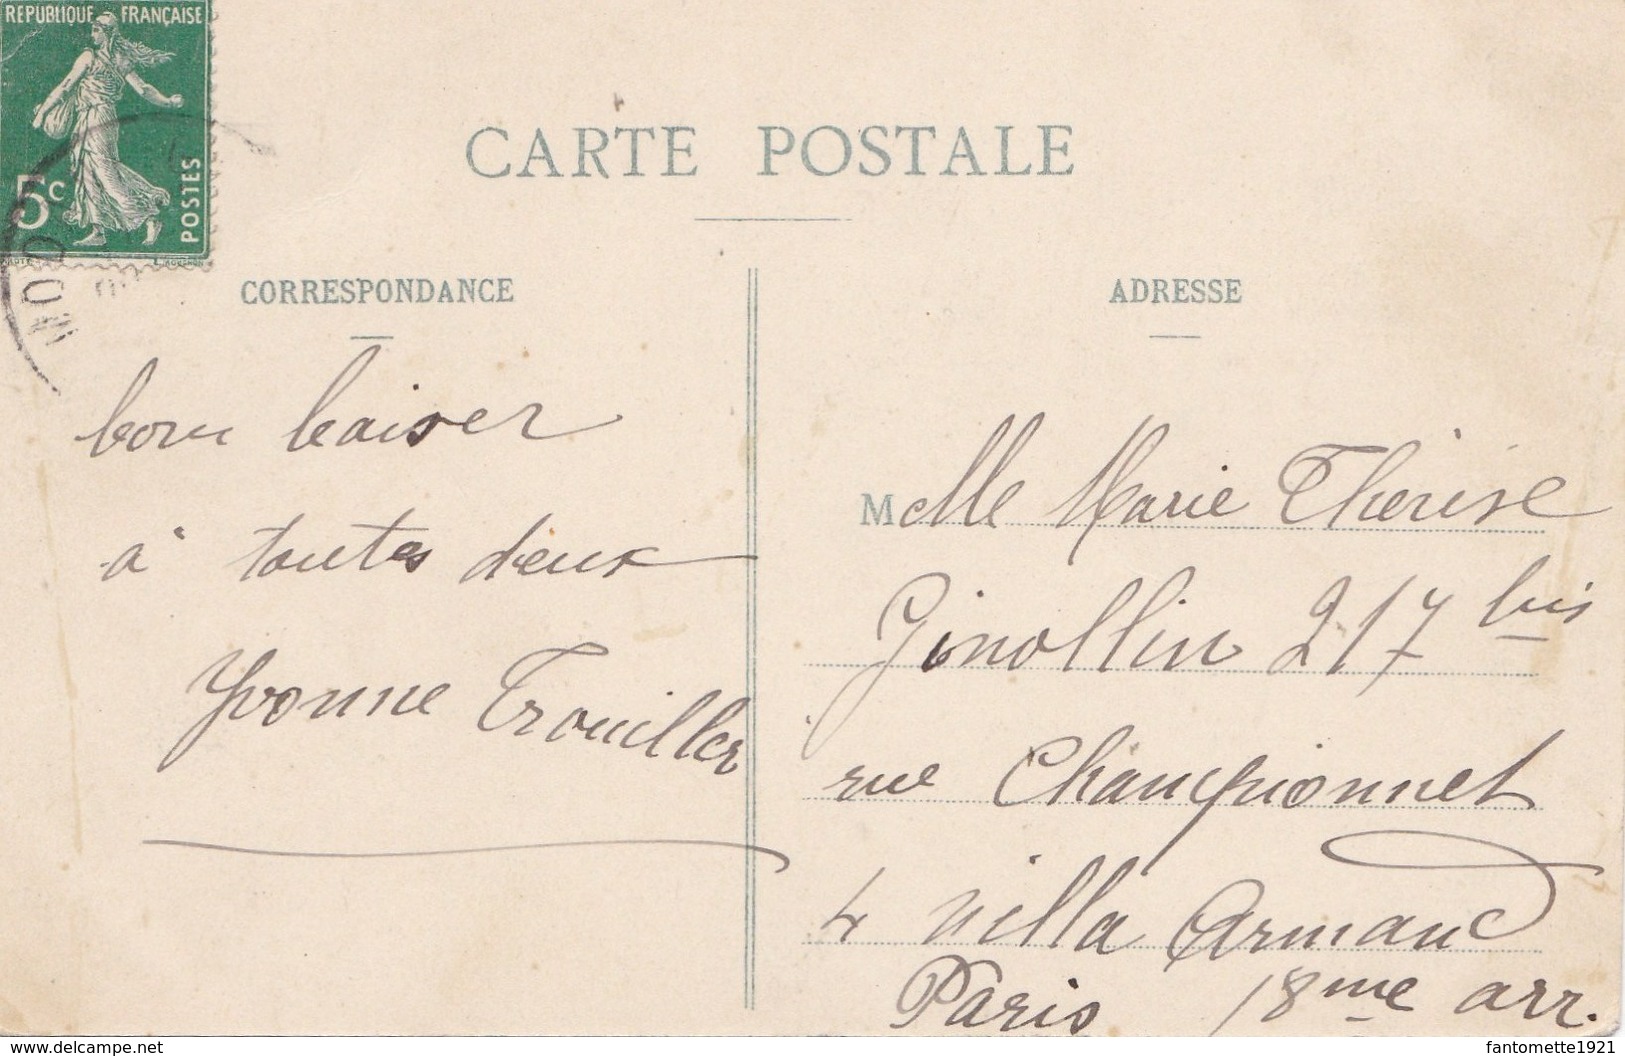 REPUBLIQUE FRANÇAISE
5c
POSTES
CARTE POSTALE
CORRESPONDANCE
ADRESSE
bon baiser
à toutes deux
Yvonne Trouiller
Melle Marie Thérèse
Ginollin 217 bis
rue Championnet
4 villa Armand
Paris 18me arr.
www.delcampe.net
fantomette1921